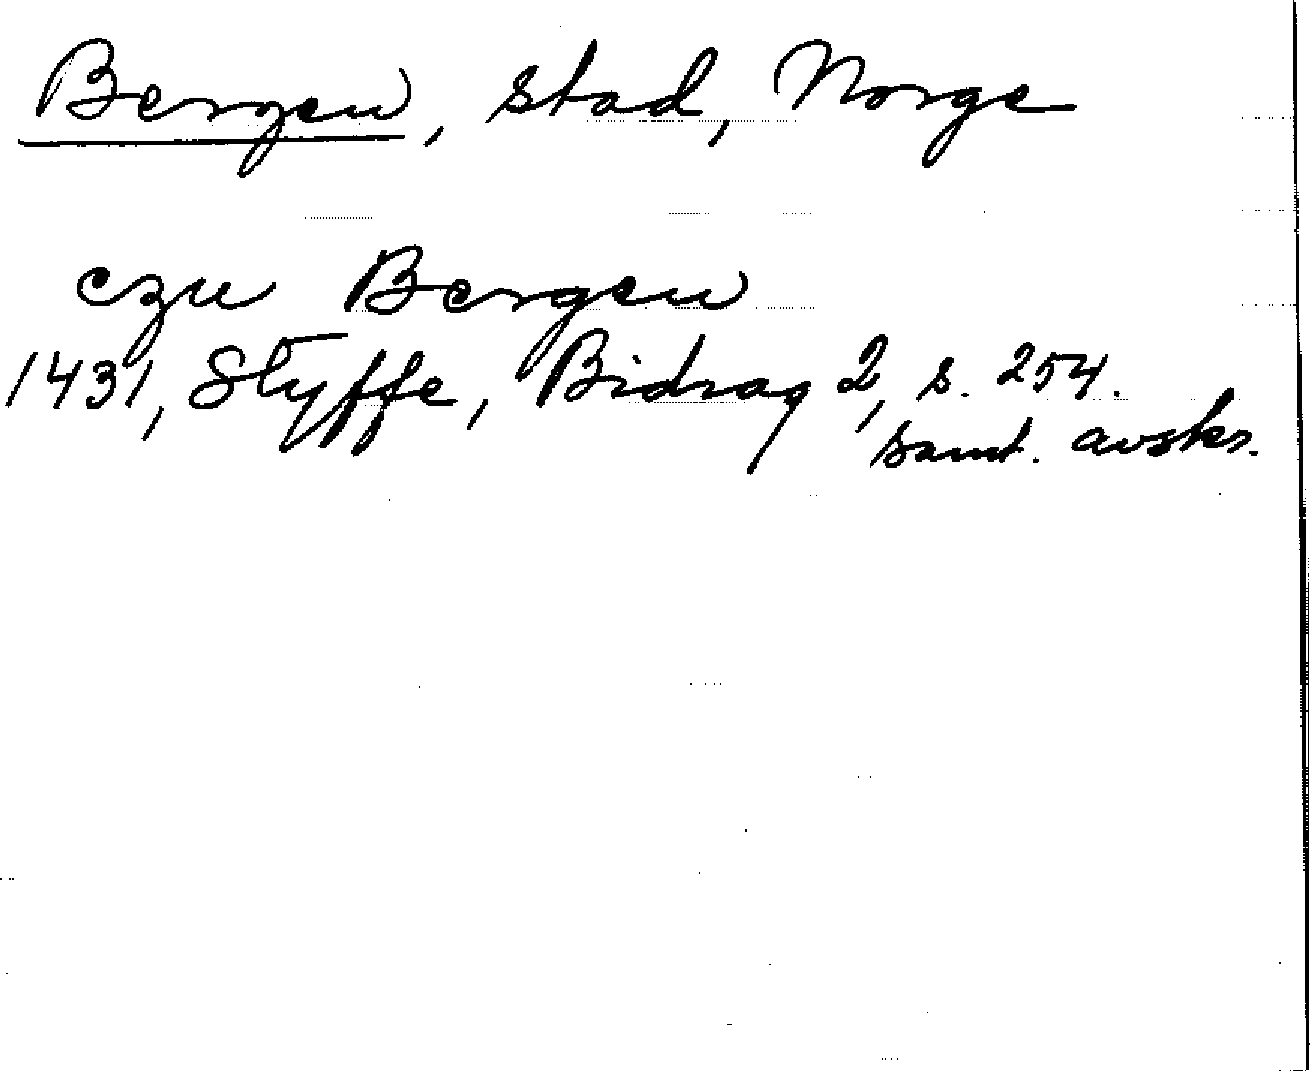 Bergen, stad, Norge
czu Bergen
1431, Styffe, Bidrag 2, s. 254.
samt. avskr.